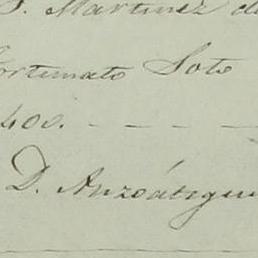 S. Martinez de
Fortunato Soto
400. - - -
D. Anzoátegui